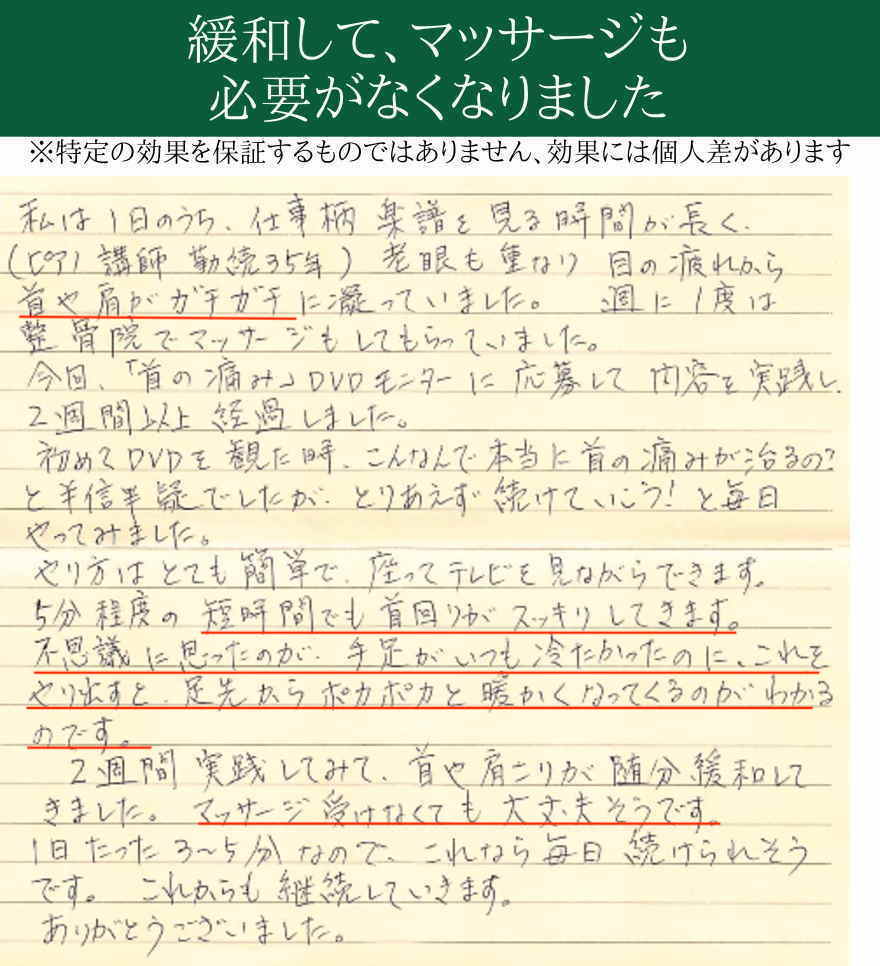 緩和して、マッサージも
必要がなくなりました
※特定の効果を保証するものではありません、効果には個人差があります
私は1日のうち、仕事柄 楽譜を見る時間が長く、
(ピアノ講師 勤続35年) 老眼も重なり 目の疲れから
首や肩がガチガチに凝っていました。 週に1度は
整骨院でマッサージもしてもらっていました。
今回、「首の痛み」DVDモニターに応募して内容を実践し、
2週間以上経過しました。
初めてDVDを観た時、こんなんで本当に首の痛みが治るの?
と半信半疑でしたが、とりあえず続けていこう!と毎日
やってみました。
やり方はとても簡単で、座ってテレビを見ながらできます。
5分程度の短時間でも首回りがスッキリしてきます。
不思議に思ったのが、手足がいつも冷たかったのに、これを
やり出すと、足先からポカポカと暖かくなってくるのがわかる
のです。
2週間実践してみて、首や肩こりが随分緩和して
きました。 マッサージ受けなくても大丈夫そうです。
1日たった3〜5分なので、これなら毎日続けられそう
です。 これからも継続していきます。
ありがとうございました。